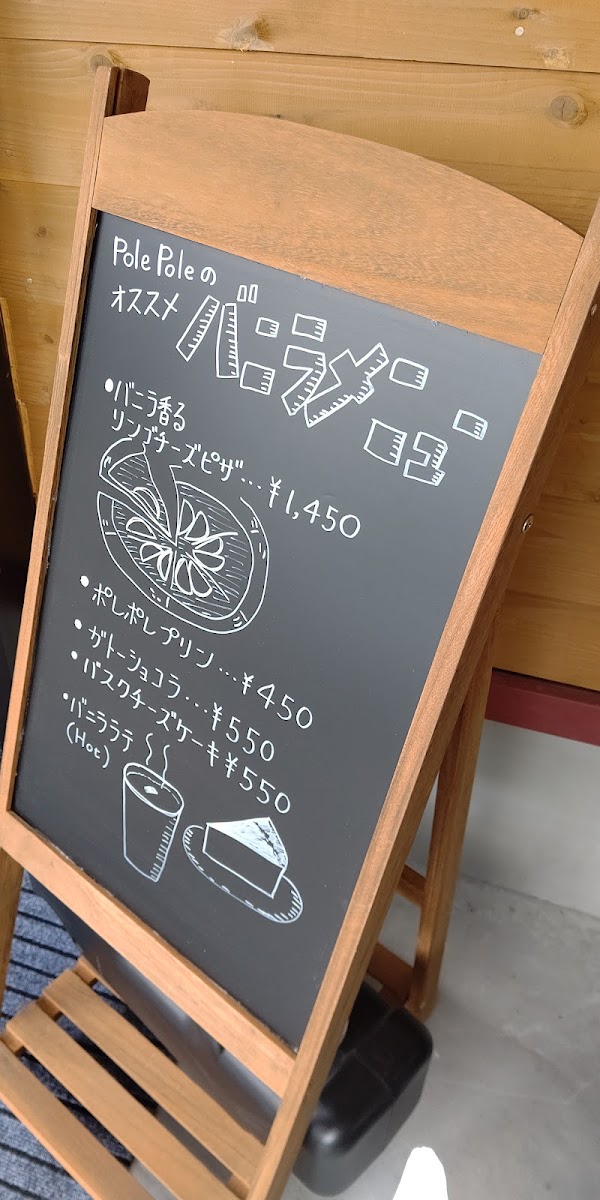 Pole Poleの
オススメ バニラメニュー
•バニラ香る
リンゴチーズピザ…¥1,450
•ポレポレプリン…¥450
•ガトーショコラ…¥550
•バスクチーズケーキ¥550
•バニララテ
(Hot)